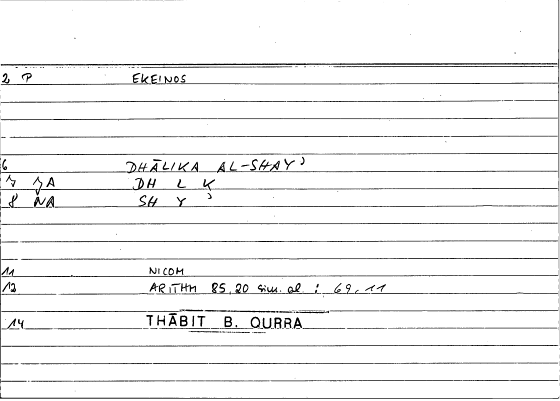 2 P EKEINOS
6 DHĀLIKA AL-SHAYʾ
7 JA DH L K
8 NA SH Y ʾ
11 NICOM
13 ARITHM 85,20 sim. al. : 69,11
14 THĀBIT B. QURRA